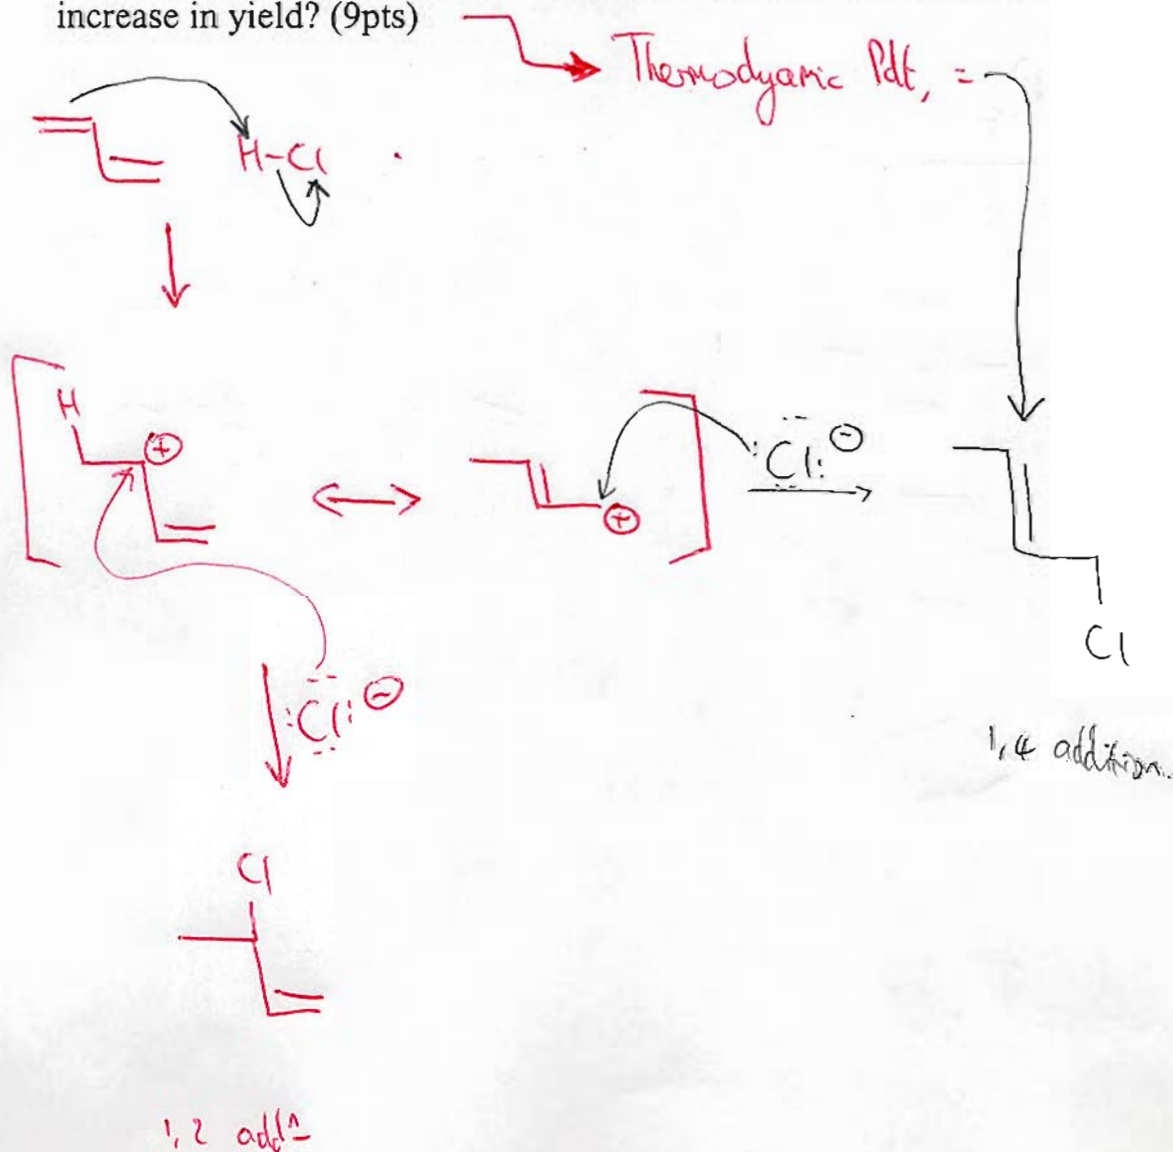 increase in yield? (9pts)
Thermodyamic Pdt, =
H-Cl
H
+
+
:Cl: -
Cl
:Cl: -
1,4 addition.
Cl
1,2 addn